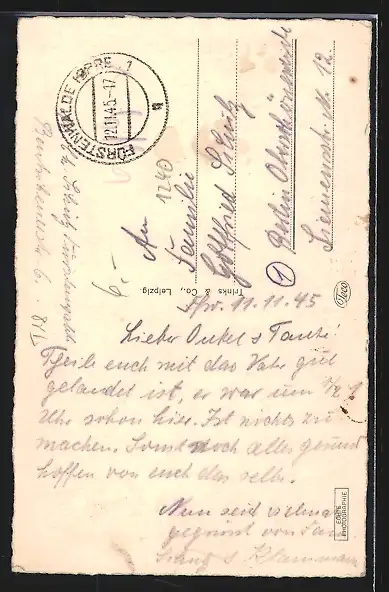 FÜRSTENWALDE (SPREE) 1
12.11.45.-17
a
1240
6,-
An
Familie
Gottfried
Berlin Oberschöneweide
Siemensstr. 12
Trinks & Co., Leipzig
Trico
Fw. 11.11.45
Lieber Onkel u Tante!
Theile euch mit das Vater gut
gelandet ist, er war um 1/2 1
Uhr schon hier. Ist nichts zu
machen. Sonst noch alles gesund
hoffen von euch das selbe.
Nun seid vielmal
gegrüsst von
ECHTE
PHOTOGRAPHIE